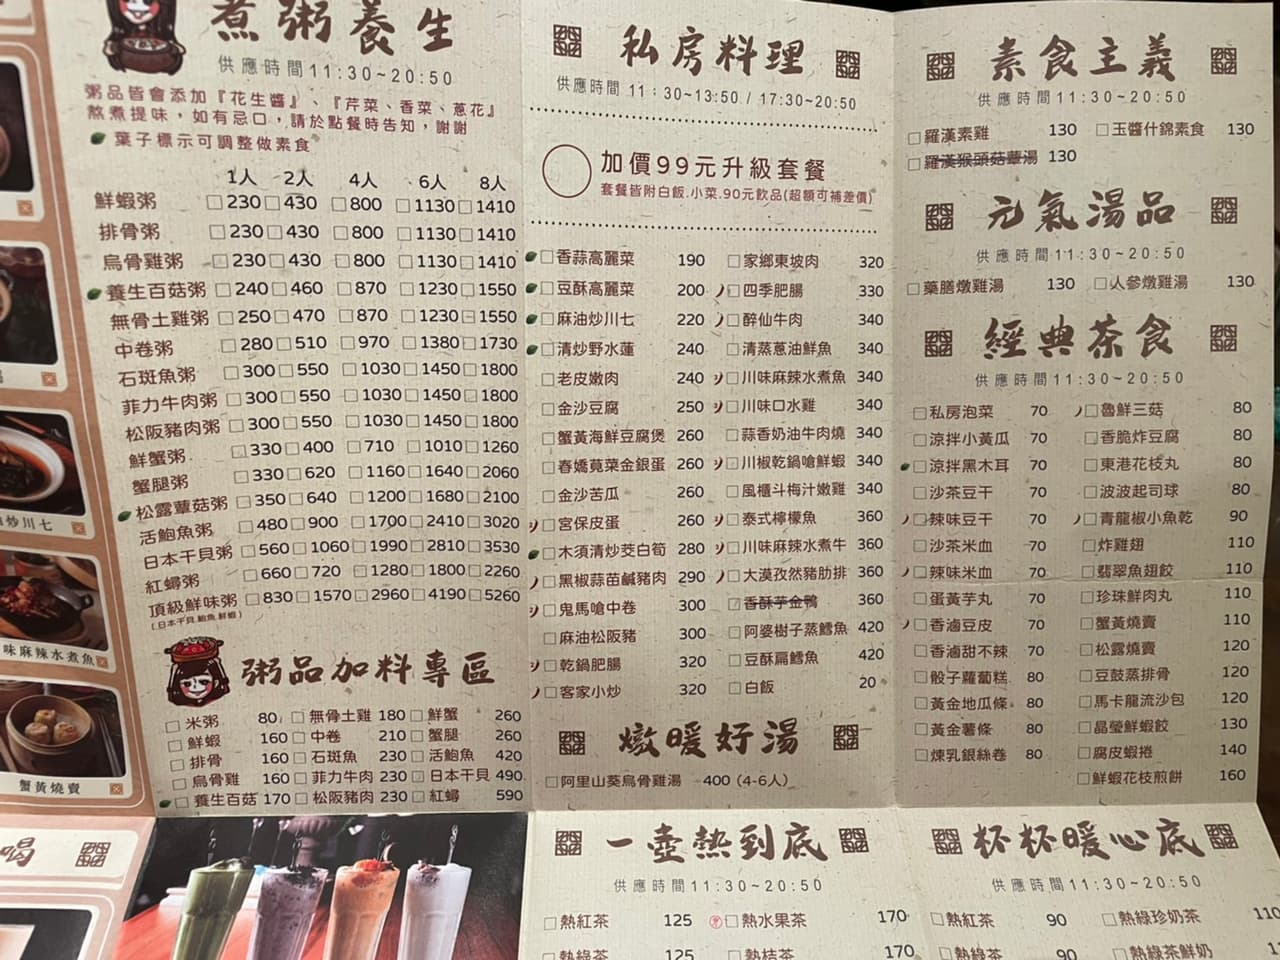 煮粥養生
供應時間11:30~20:50
粥品皆會添加『花生醬』、『芹菜、香菜、蔥花』
熬煮提味，如有忌口，請於點餐時告知，謝謝
葉子標示可調整做素食
1人 2人 4人 6人 8人
鮮蝦粥 □230 □430 □800 □1130 □1410
排骨粥 □230 □430 □800 □1130 □1410
烏骨雞粥 □230 □430 □800 □1130 □1410
養生百菇粥 □240 □460 □870 □1230 □1550
無骨土雞粥 □250 □470 □870 □1230 □1550
中卷粥 □280 □510 □970 □1380 □1730
石斑魚粥 □300 □550 □1030 □1450 □1800
菲力牛肉粥 □300 □550 □1030 □1450 □1800
松阪豬肉粥 □300 □550 □1030 □1450 □1800
鮮蟹粥 □330 □400 □710 □1010 □1260
蟹腿粥 □330 □620 □1160 □1640 □2060
松露蕈菇粥 □350 □640 □1200 □1680 □2100
活鮑魚粥 □480 □900 □1700 □2410 □3020
日本干貝粥 □560 □1060 □1990 □2810 □3530
紅蟳粥 □660 □720 □1280 □1800 □2260
頂級鮮味粥 □830 □1570 □2960 □4190 □5260
(日本干貝.鮑魚.鮮蝦)
粥品加料專區
□米粥 80 □無骨土雞 180 □鮮蟹 260
□鮮蝦 160 □中卷 210 □蟹腿 260
□排骨 160 □石斑魚 230 □活鮑魚 420
□烏骨雞 160 □菲力牛肉 230 □日本干貝 490
□養生百菇 170 □松阪豬肉 230 □紅蟳 590
私房料理
供應時間 11：30~13:50 / 17:30~20:50
加價99元升級套餐
套餐皆附白飯.小菜.90元飲品(超額可補差價)
□香蒜高麗菜 190 □家鄉東坡肉 320
□豆酥高麗菜 200 □四季肥腸 330
□麻油炒川七 220 □醉仙牛肉 340
□清炒野水蓮 240 □清蒸蔥油鮮魚 340
□老皮嫩肉 240 □川味麻辣水煮魚 340
□金沙豆腐 250 □川味口水雞 340
□蟹黃海鮮豆腐煲 260 □蒜香奶油牛肉燒 340
□春嬌莧菜金銀蛋 260 □川椒乾鍋嗆鮮蝦 340
□金沙苦瓜 260 □風櫃斗梅汁嫩雞 340
□宮保皮蛋 260 □泰式檸檬魚 360
□木須清炒茭白筍 280 □川味麻辣水煮牛 360
□黑椒蒜苗鹹豬肉 290 □大漠孜然豬肋排 360
□鬼馬嗆中卷 300 □香酥芋金鴨 360
□麻油松阪豬 300 □阿婆樹子蒸鱈魚 420
□乾鍋肥腸 320 □豆酥扁鱈魚 420
□客家小炒 320 □白飯 20
燉暖好湯
□阿里山葵烏骨雞湯 400 (4-6人)
素食主義
供應時間11:30~20:50
□羅漢素雞 130 □玉醬什錦素食 130
□羅漢猴頭菇蕈湯 130
元氣湯品
供應時間11:30~20:50
□藥膳燉雞湯 130 □人參燉雞湯 130
經典茶食
供應時間11:30~20:50
□私房泡菜 70 □魯鮮三菇 80
□涼拌小黃瓜 70 □香脆炸豆腐 80
□涼拌黑木耳 70 □東港花枝丸 80
□沙茶豆干 70 □波波起司球 80
□辣味豆干 70 □青龍椒小魚乾 90
□沙茶米血 70 □炸雞翅 110
□辣味米血 70 □翡翠魚翅餃 110
□蛋黃芋丸 70 □珍珠鮮肉丸 110
□香滷豆皮 70 □蟹黃燒賣 110
□香滷甜不辣 70 □松露燒賣 120
□骰子蘿蔔糕 80 □豆鼓蒸排骨 120
□黃金地瓜條 80 □馬卡龍流沙包 120
□黃金薯條 80 □晶瑩鮮蝦餃 130
□煉乳銀絲卷 80 □腐皮蝦捲 140
□鮮蝦花枝煎餅 160
炒川七
味麻辣水煮魚
蟹黃燒賣
喝
一壺熱到底
供應時間11:30~20:50
□熱紅茶 125 □熱水果茶 170
□熱綠茶 125 □熱桔茶 170
杯杯暖心底
供應時間11:30~20:50
□熱紅茶 90 □熱綠珍奶茶 110
□熱綠茶 90 □熱綠茶鮮奶